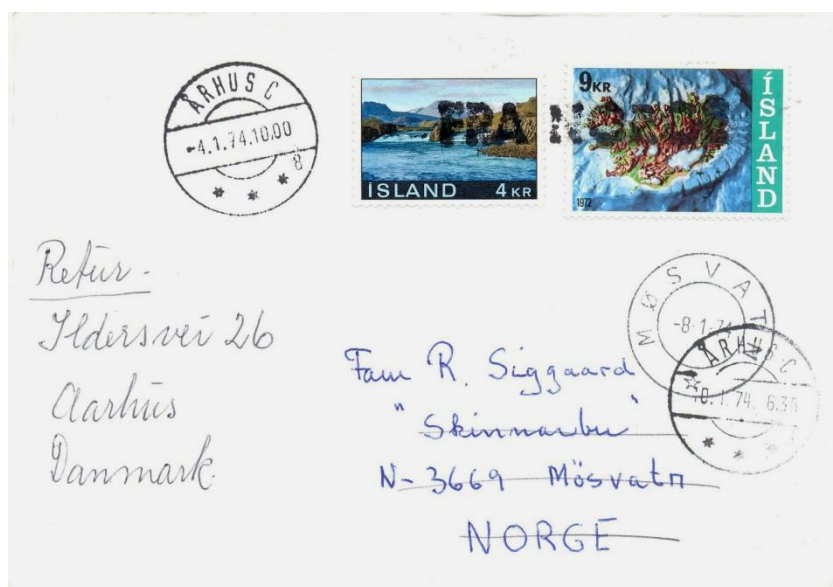 ÅRHUS C
-4.1.74.10.00
8
ÍSLAND 4 KR
9KR
ÍSLAND
1972
Retur-
Ildersvei 26
Aarhus
Danmark
MØSVATN
-8.1.74
ÅRHUS C
10.1.74. 6.30
Fam R. Siggaard
"Skinnarbu"
N-3669 Mösvatn
NORGE